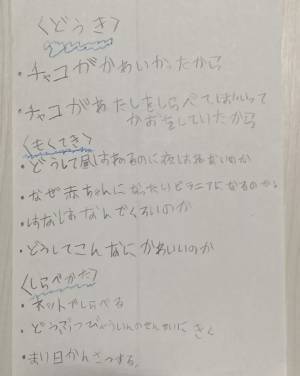 〈どうき〉
・チャコがかわいかったから
・チャコがあたしをしらべてほしいって
かおをしていたから
〈もくてき〉
・どうして昼はするのに夜はないのか
・なぜ赤ちゃんに
・はなはなんでくろいのか
・どうしてこんなにかわいいのか
〈しらべかた〉
・ネットでしらべる
・どうぶつびょういんのせんせいにきく
・まい日かんさつする。